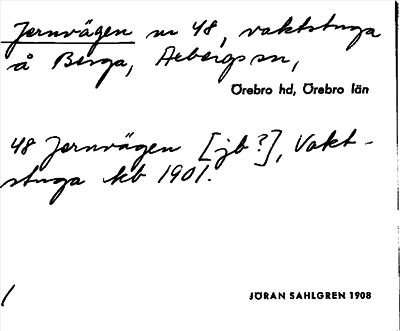 Jernvägen nr 48, vaktstuga
å Berga, sn,
Örebro hd, Örebro län
48 Jernvägen [jb?], Vakt-
stuga kb 1901.
JÖRAN SAHLGREN 1908